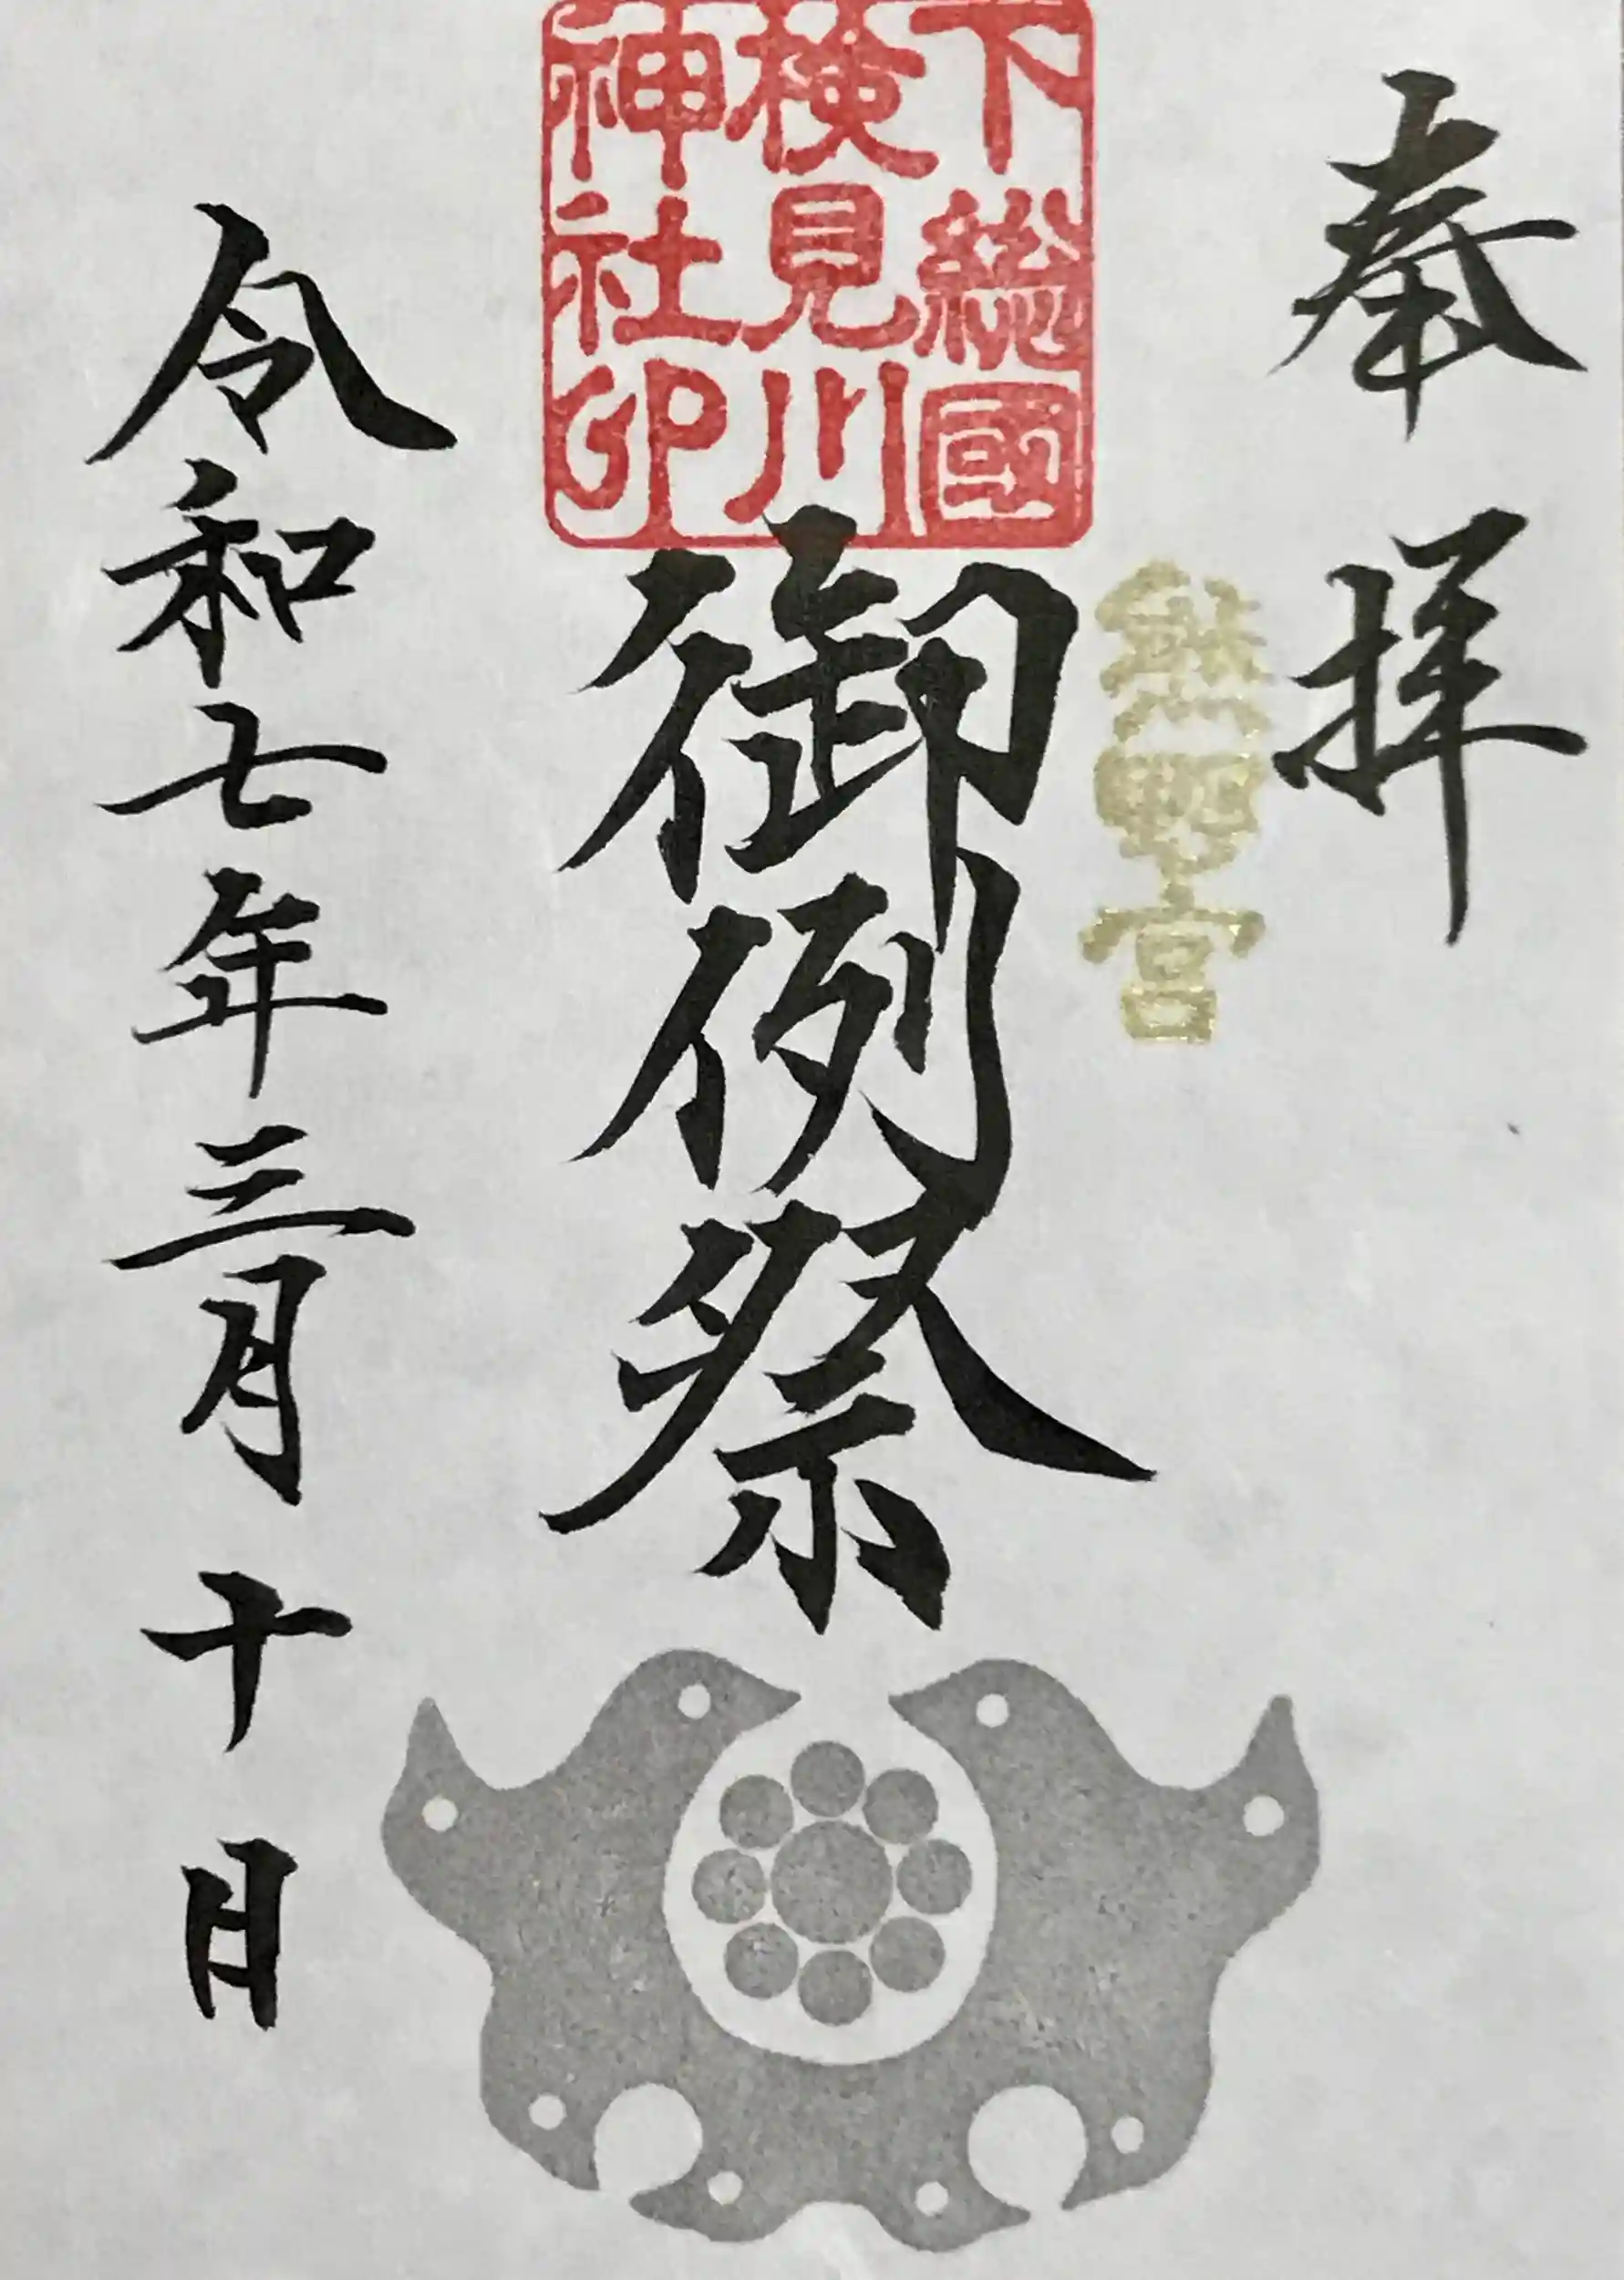 奉拝
熊野宮
下総國
検見川
神社印
御例祭
令和七年三月十日